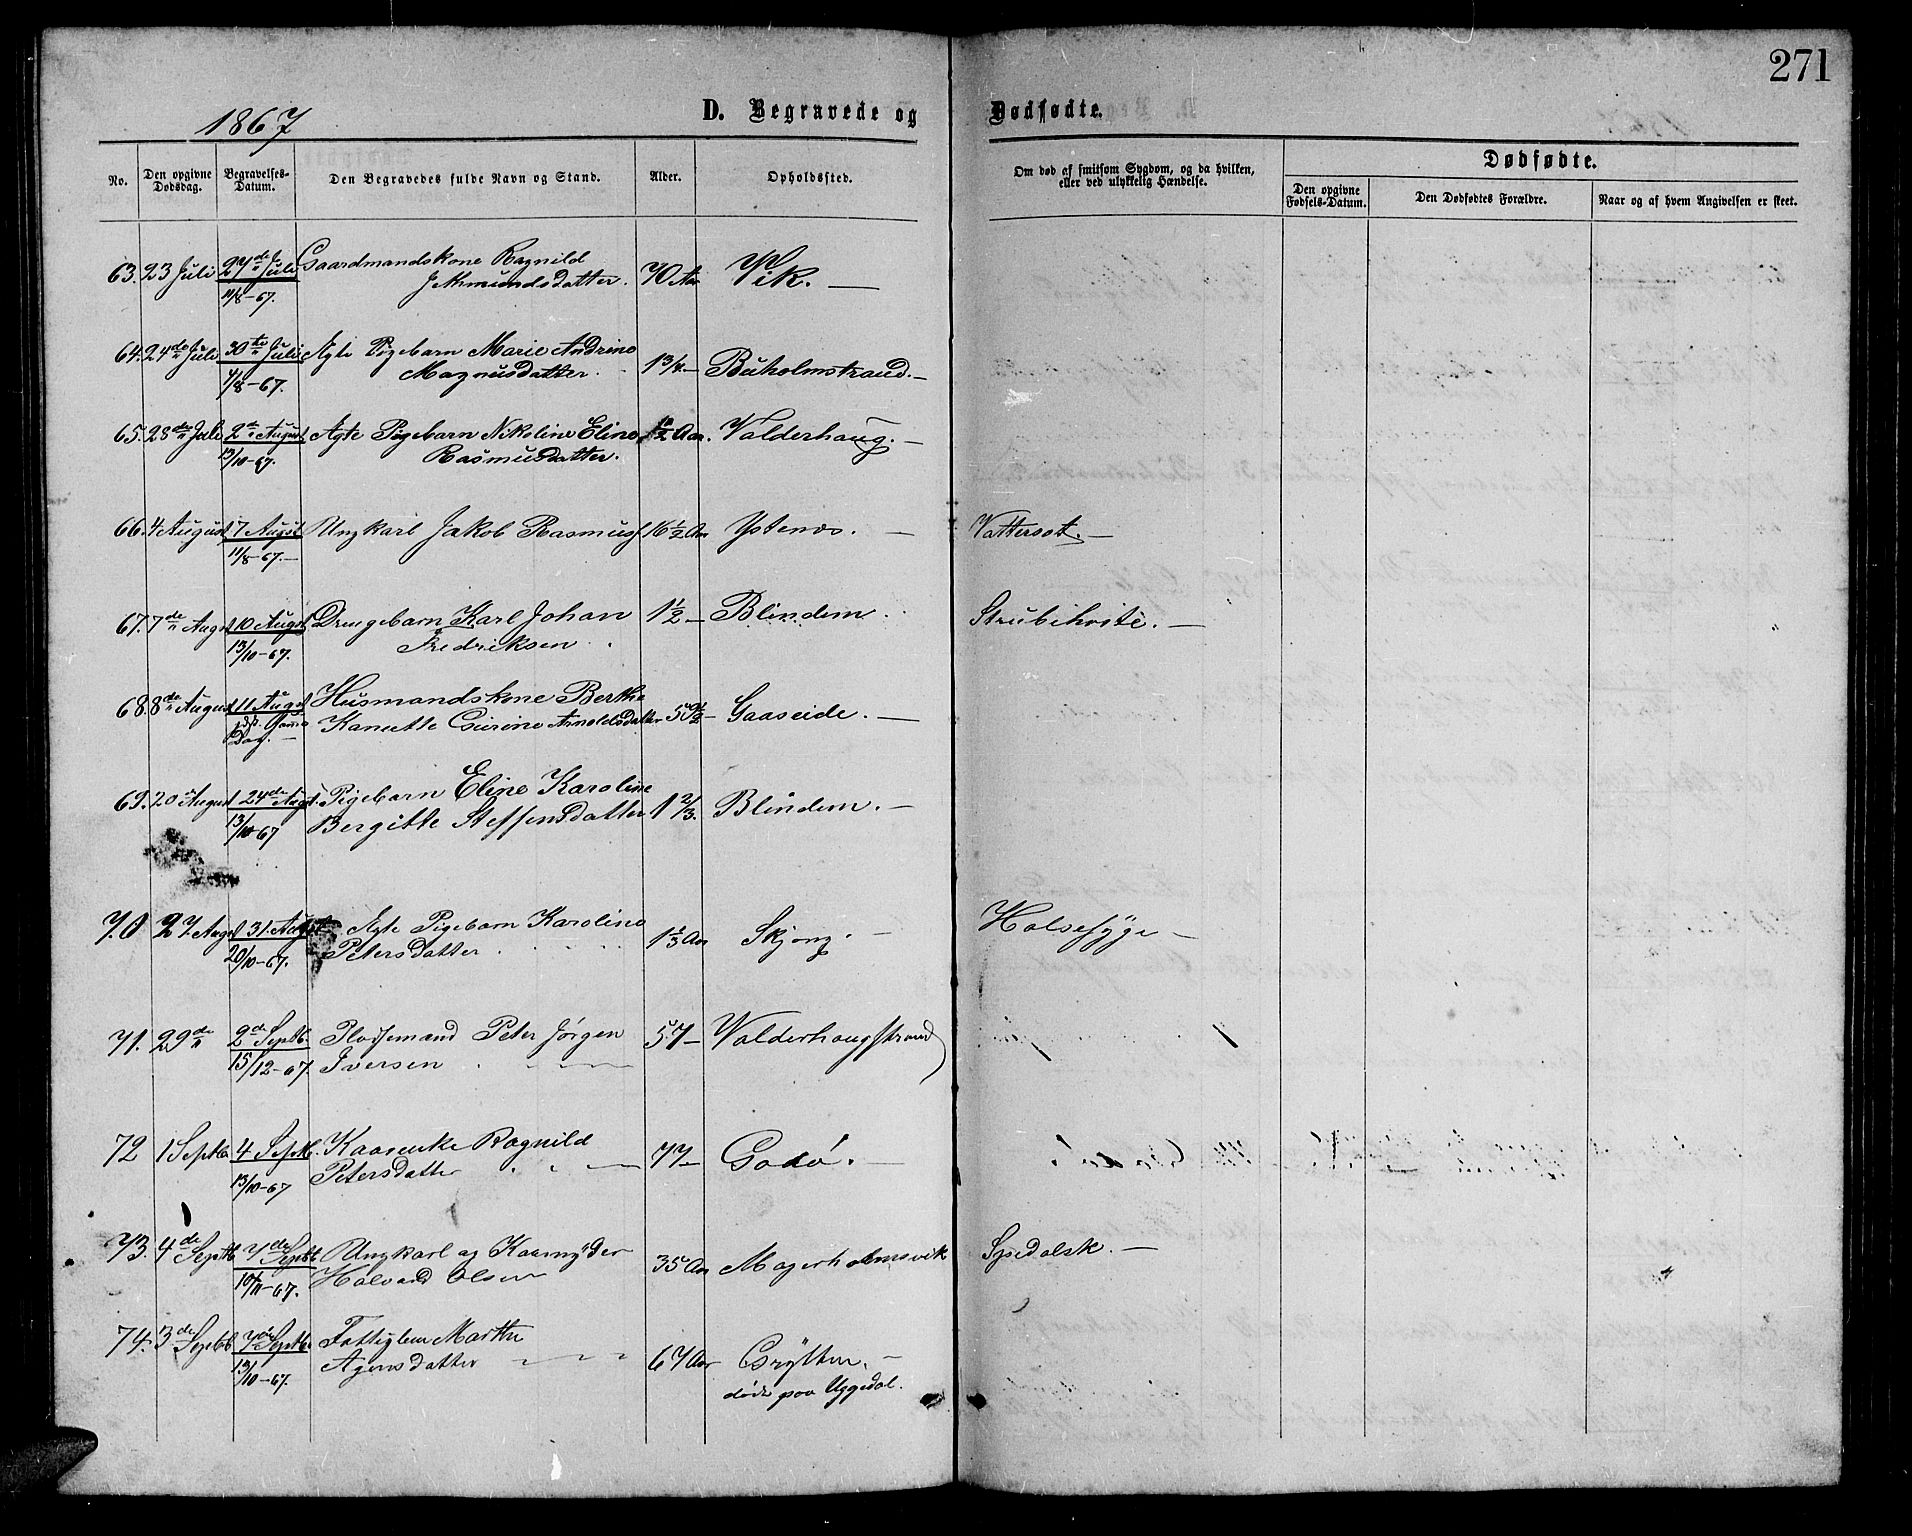 271
1867
D. Begravede og Dødfødte.
No. Den opgivne Dødsdag. Begravelses-Datum. Den Begravedes fulde Navn og Stand. Alder. Opholdssted. Om død af smitsom Sygdom, og da hvilken, eller ved ulykkelig Hændelse.
Dødfødte.
Den opgivne Fødsels-Datum. Den Dødfødtes Forældre. Naar og af hvem Angivelsen er skeet.
63. 23 Juli 27de Juli Gaardmandskone Ragnild 70 Aar Vik. —
11/8-67. Jetmundsdatter.
64. 24de Juli 30te Juli Ægte Pigebarn Marie Andrine 1 3/4 — Buholmstrand. —
4/8-67. Magnusdatter.
65. 28de Juli 2de August Ægte Pigebarn Nikoline Eline 1/2 Aar. Valderhaug. —
13/10-67. Rasmusdatter.
66. 4 August 7 August Ungkarl Jakob Rasmuss 16 1/2 Aar Ystenæs. — Vattersot. —
11/8-67. —
67. 7de Augst 10 Augst Drengebarn Karl Johan 1 1/2 — Blindem. Strubehoste. —
13/10-67. Fredriksen
68. 8de August 11 Augst Husmandskone Berthe
Kanutte Gurine Arnoldsdatter 50 1/2 — Gaaseide. —
Samme Dag. —
69. 20 August 24de Augst. Pigebarn Eline Karoline 1 2/3. Blindem. —
13/10-67 Bergitte Steffensdatter
70 27 Augst 31. Augst Ægte Pigebarn Karoline 1 1/3 Aar Skjong. — Halsesyge —
20/10-67. Petersdatter.
71. 29de 2de Septb. Pladsemand Peter Jørgen 57 — Valderhaugstrand
15/12-67. Iversen
72 1 Septb. 4 Septb. Kaarenke Ragnild 77 — Godø. —
13/10-67 Petersdatter
73. 4de Septb 7de Septb. Ungkarl og Kaarnyder 35 Aar Magerholmsvik Spedalsk. —
10/11-67. Halvard Olsen
74. 3de Septb 7de Septb. Fattiglem Marthe 67 Aar Grytten. —
13/10-67. Agensdatter døde paa Uggedal.